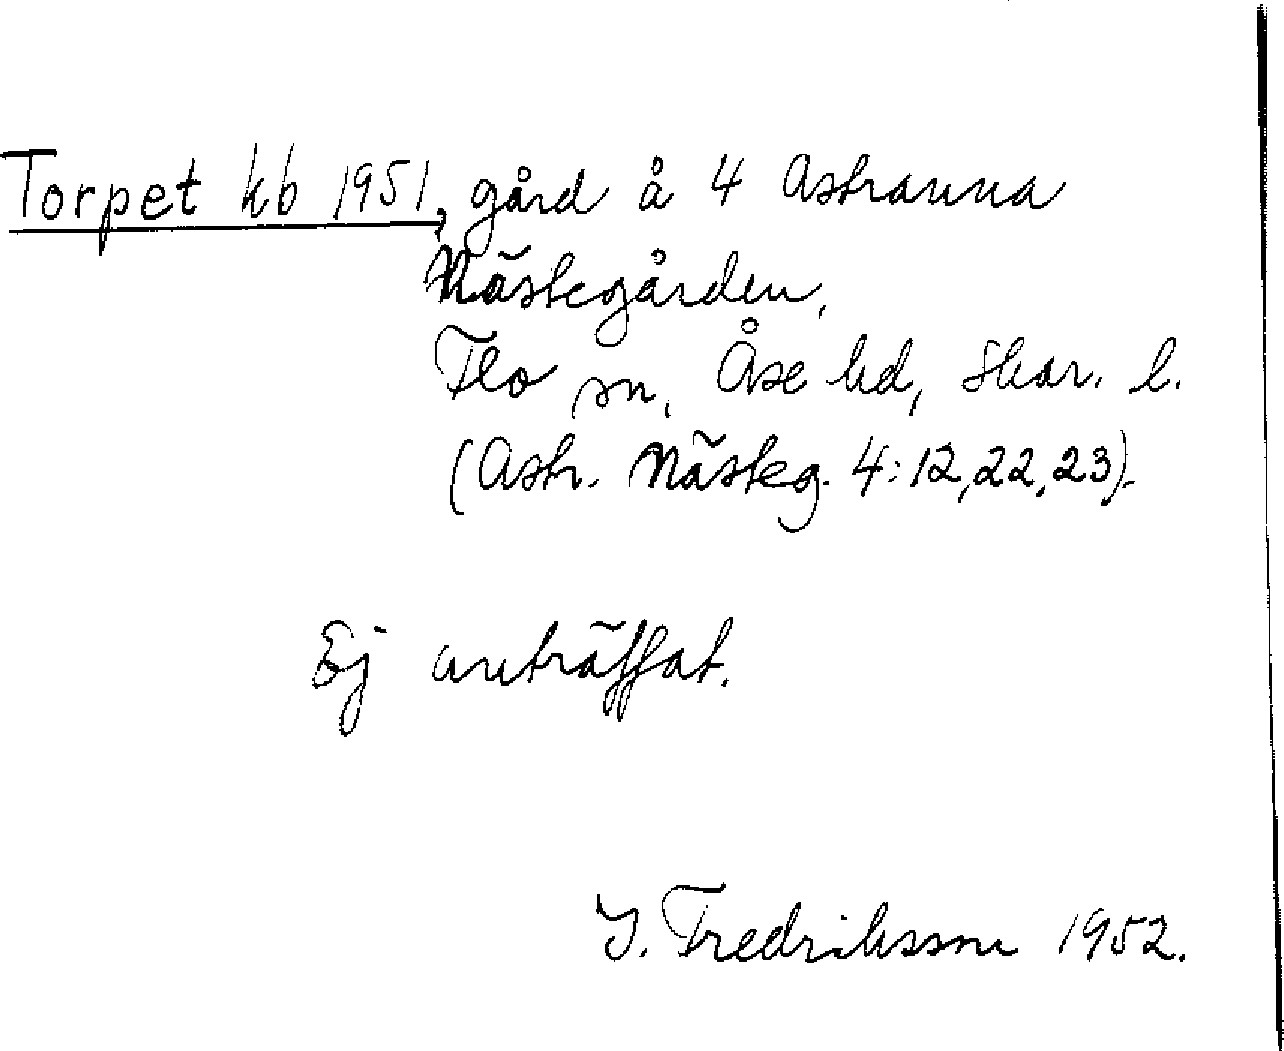 Torpet kb 1951, gård å 4 Astranna
Nästegården,
Flo sn, Åse hd, Skar. l.
(Astr. Nästeg. 4:12,22,23).
Ej anträffat.
I. Fredriksson 1952.